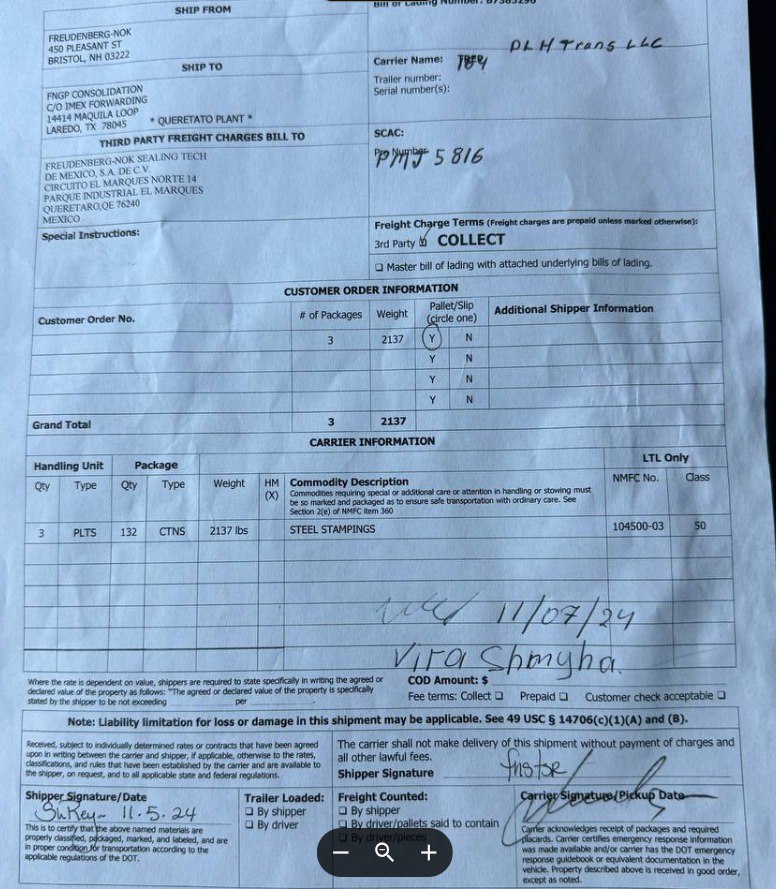 SHIP FROM
FREUDENBERG-NOK
450 PLEASANT ST
BRISTOL, NH 03222
SHIP TO
FNGP CONSOLIDATION
C/O IMEX FORWARDING
14414 MAQUILA LOOP
LAREDO, TX 78045 * QUERETATO PLANT *
THIRD PARTY FREIGHT CHARGES BILL TO
FREUDENBERG-NOK SEALING TECH
DE MEXICO, S.A. DE C.V.
CIRCUITO EL MARQUES NORTE 14
PARQUE INDUSTRIAL EL MARQUES
QUERETARO,QE 76240
MEXICO
Special Instructions:
Bill of Lading Number:
DLH Trans LLC
Carrier Name:
Trailer number:
Serial number(s):
SCAC:
Pro Number
PMJ 5816
Freight Charge Terms (Freight charges are prepaid unless marked otherwise):
3rd Party COLLECT
☐ Master bill of lading with attached underlying bills of lading.
CUSTOMER ORDER INFORMATION
Customer Order No. # of Packages Weight Pallet/Slip (circle one) Additional Shipper Information
3 2137 Y N
Y N
Y N
Y N
Grand Total 3 2137
CARRIER INFORMATION
Handling Unit Package LTL Only
Qty Type Qty Type Weight HM (X) Commodity Description NMFC No. Class
Commodities requiring special or additional care or attention in handling or stowing must
be so marked and packaged as to ensure safe transportation with ordinary care. See
Section 2(e) of NMFC item 360
3 PLTS 132 CTNS 2137 lbs STEEL STAMPINGS 104500-03 50
11/07/24
Vira Shmyha.
Where the rate is dependent on value, shippers are required to state specifically in writing the agreed or
declared value of the property as follows: "The agreed or declared value of the property is specifically
stated by the shipper to be not exceeding per
COD Amount: $
Fee terms: Collect ☐ Prepaid ☐ Customer check acceptable ☐
Note: Liability limitation for loss or damage in this shipment may be applicable. See 49 USC § 14706(c)(1)(A) and (B).
Received, subject to individually determined rates or contracts that have been agreed
upon in writing between the carrier and shipper, if applicable, otherwise to the rates,
classifications, and rules that have been established by the carrier and are available to
the shipper, on request, and to all applicable state and federal regulations.
The carrier shall not make delivery of this shipment without payment of charges and
all other lawful fees.
Shipper Signature
Shipper Signature/Date
11.5.24
This is to certify that the above named materials are
properly classified, packaged, marked, and labeled, and are
in proper condition for transportation according to the
applicable regulations of the DOT.
Trailer Loaded:
☐ By shipper
☐ By driver
Freight Counted:
☐ By shipper
☐ By driver/pallets said to contain
☐ By driver/pieces
Carrier Signature/Pickup Date
Carrier acknowledges receipt of packages and required
placards. Carrier certifies emergency response information
was made available and/or carrier has the DOT emergency
response guidebook or equivalent documentation in the
vehicle. Property described above is received in good order,
except as noted.